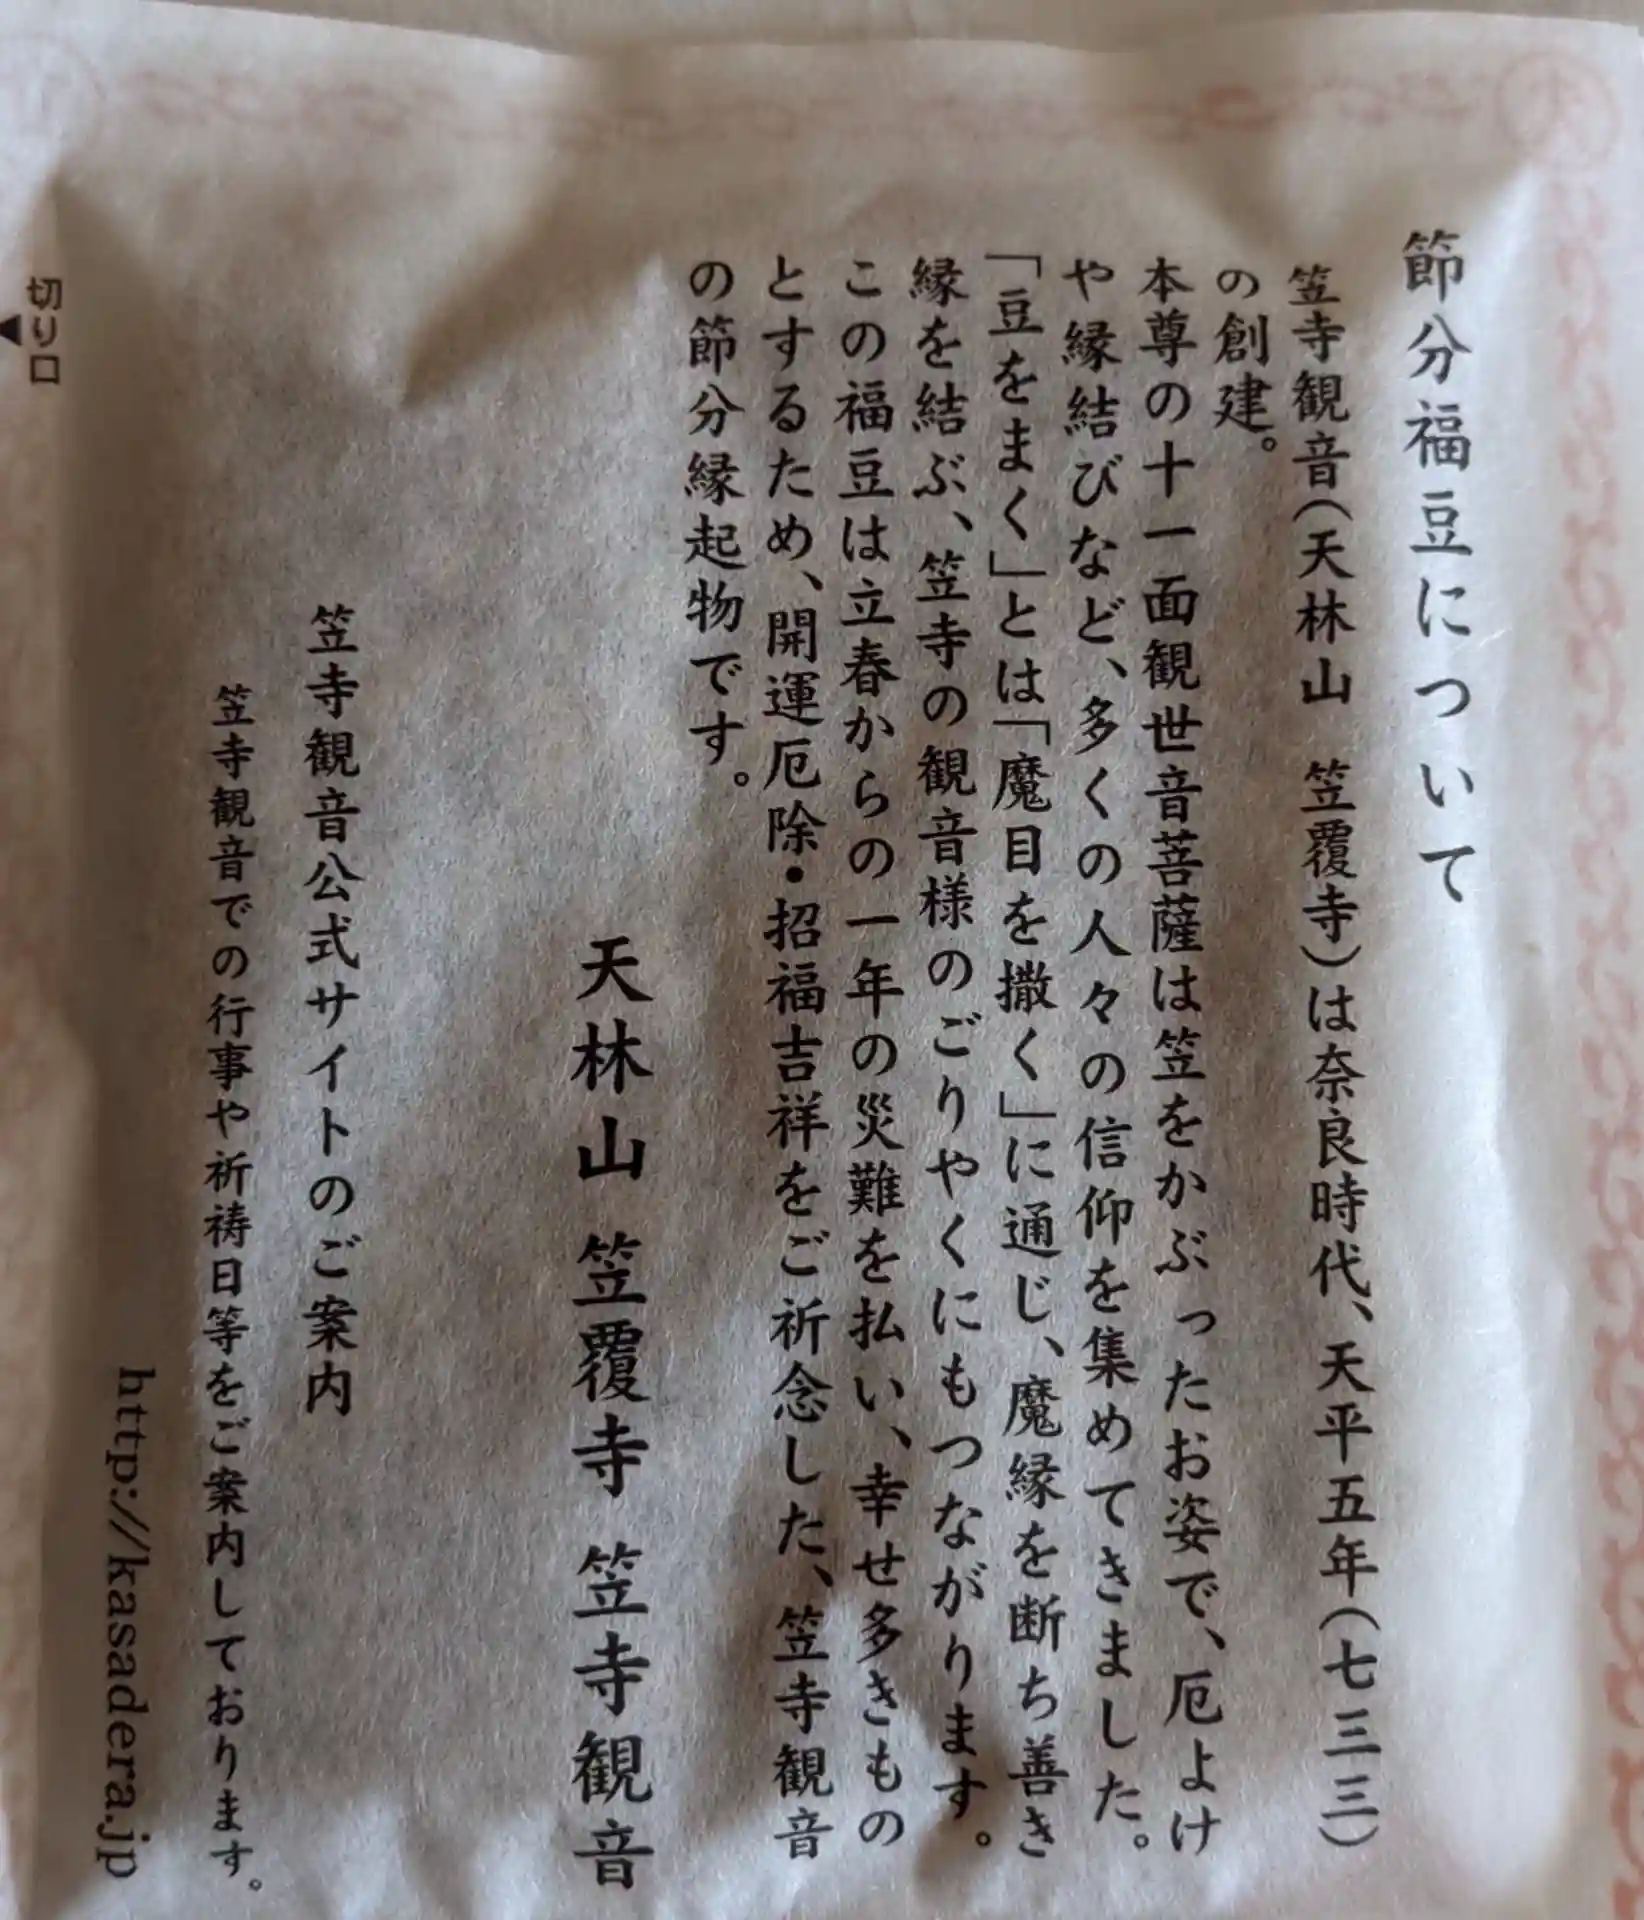 節分福豆について
笠寺観音(天林山 笠覆寺)は奈良時代、天平五年(七三三)
の創建。
本尊の十一面観世音菩薩は笠をかぶったお姿で、厄よけ
や縁結びなど、多くの人々の信仰を集めてきました。
「豆をまく」とは「魔目を撒く」に通じ、魔縁を断ち善き
縁を結ぶ、笠寺の観音様のごりやくにもつながります。
この福豆は立春からの一年の災難を払い、幸せ多きもの
とするため、開運厄除・招福吉祥をご祈念した、笠寺観音
の節分縁起物です。
天林山 笠覆寺 笠寺観音
笠寺観音公式サイトのご案内
笠寺観音での行事や祈祷日等をご案内しております。
http://kasadera.jp
切り口